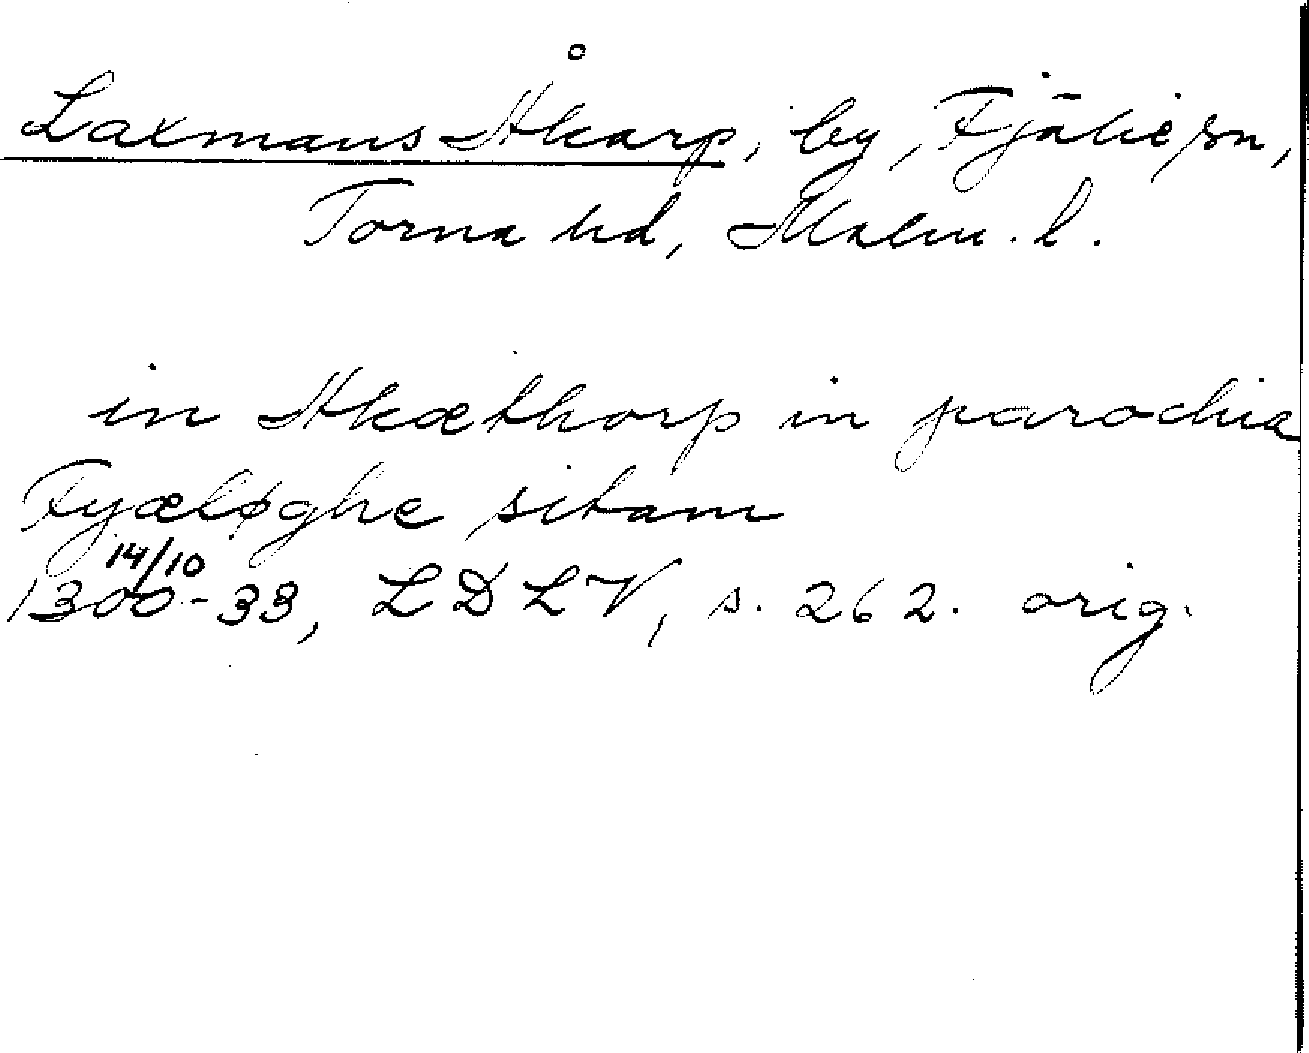 Laxmans Åkarp, by, Fjälie sn,
Torna hd, Malm. l.
in Akæthorp in parochia
Fyæløghe sitam
14/10
1300-33, LDLV, s. 262. orig.